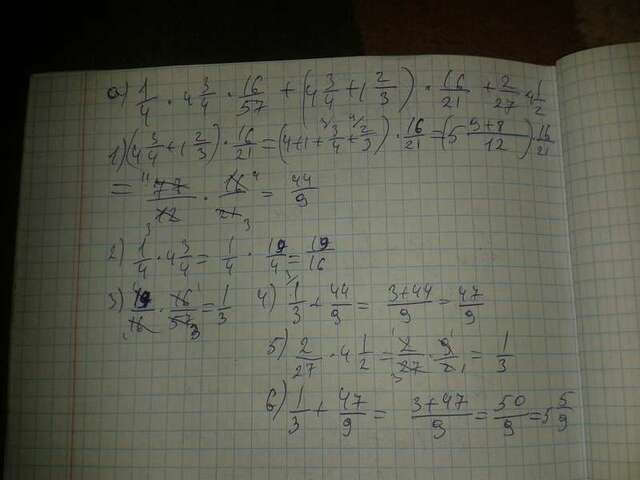 а) 1/4 · 4 3/4 · 16/57 + (4 3/4 + 1 2/3) · 16/21 + 2/27 · 4 1/2
1) (4 3/4 + 1 2/3) · 16/21 = (4+1 + 3/4 + 2/3) · 16/21 = (5 9+8/12) 16/21
= 77/12 · 16/21 = 44/9
2) 1/4 · 4 3/4 = 1/4 · 19/4 = 19/16
3) 19/16 · 16/57 = 1/3
4) 1/3 + 44/9 = 3+44/9 = 47/9
5) 2/27 · 4 1/2 = 2/27 · 9/2 = 1/3
6) 1/3 + 47/9 = 3+47/9 = 50/9 = 5 5/9